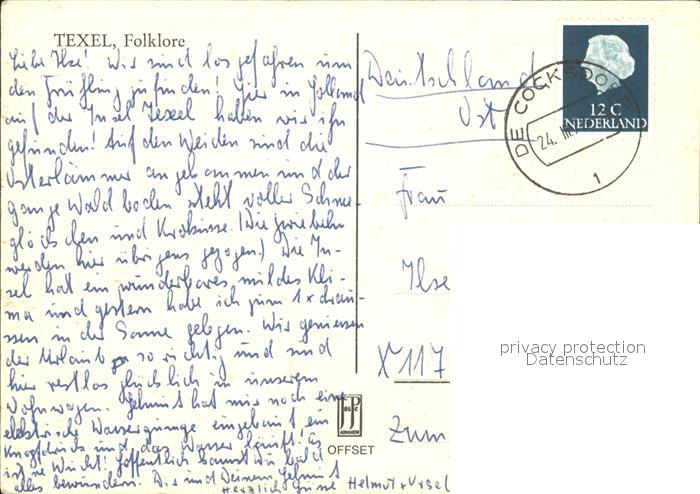 TEXEL, Folklore
Liebe Ilse! Wir sind losgefahren um
den Frühling zu finden! Hier in Holland
auf der Insel Texel haben wir ihn
gefunden! Auf den Weiden sind die
Osterlämmer angekommen und der
ganze Waldboden steht voller Schnee-
glöckchen und Krokusse. (Die Zwiebeln
werden hier übrigens gezogen) Die In-
sel hat ein wunderbares mildes Kli-
ma und gestern habe ich zum 1x drau-
ssen in der Sonne gelegen. Wir geniessen
der Urlaub so richtig und sind
hier restlos glücklich in unserem
Wohnwagen. Helmut hat mir noch eine
elektrische Wasserpumpe eingebaut ein
Knopfdruck und das Wasser läuft! Es
ist ne Wucht! Hoffentlich kannst Du bald
alles bewundern. Dir und Deinem Helmut
herzliche Grüsse Helmut + Ursel
Deutschland
Ost
Frau
Ilse
X 117
Zum
OFFSET
12 C
NEDERLAND
DE COCKSDO
24. III
1
privacy protection
Datenschutz